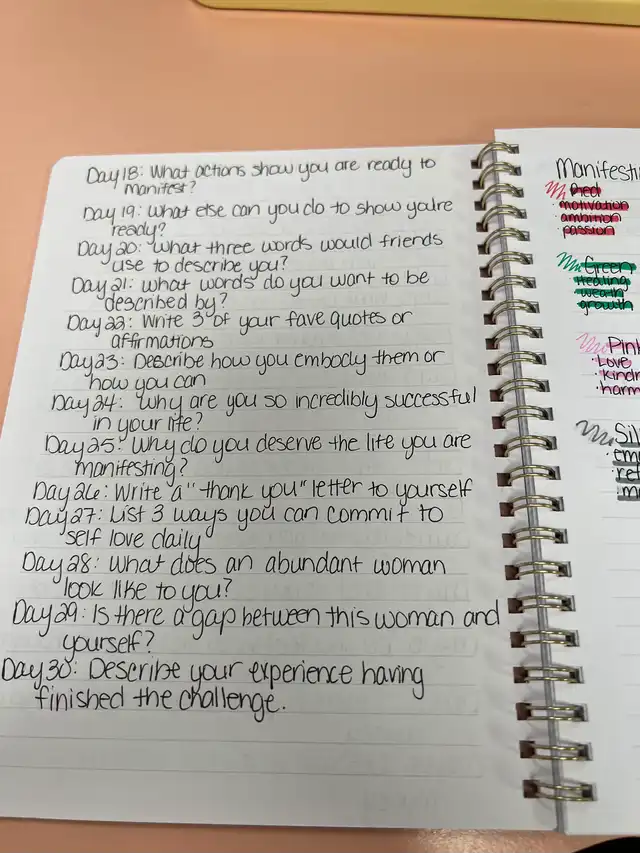 Day 18: What actions show you are ready to
manifest?
Day 19: What else can you do to show you're
ready?
Day 20: What three words would friends
use to describe you?
Day 21: What words do you want to be
described by?
Day 22: Write 3 of your fave quotes or
affirmations
Day 23: Describe how you embody them or
how you can
Day 24: Why are you so incredibly successful
in your life?
Day 25: Why do you deserve the life you are
manifesting?
Day 26: Write a "thank you" letter to yourself
Day 27: List 3 ways you can commit to
self love daily
Day 28: What does an abundant woman
look like to you?
Day 29: Is there a gap between this woman and
yourself?
Day 30: Describe your experience having
finished the challenge.
Manifesti
Red
motivation
· ambition
passion
Green
Healing
weath
growth
Pink
· Love
· kindr
· harm
Sil
· em
· ref
· m